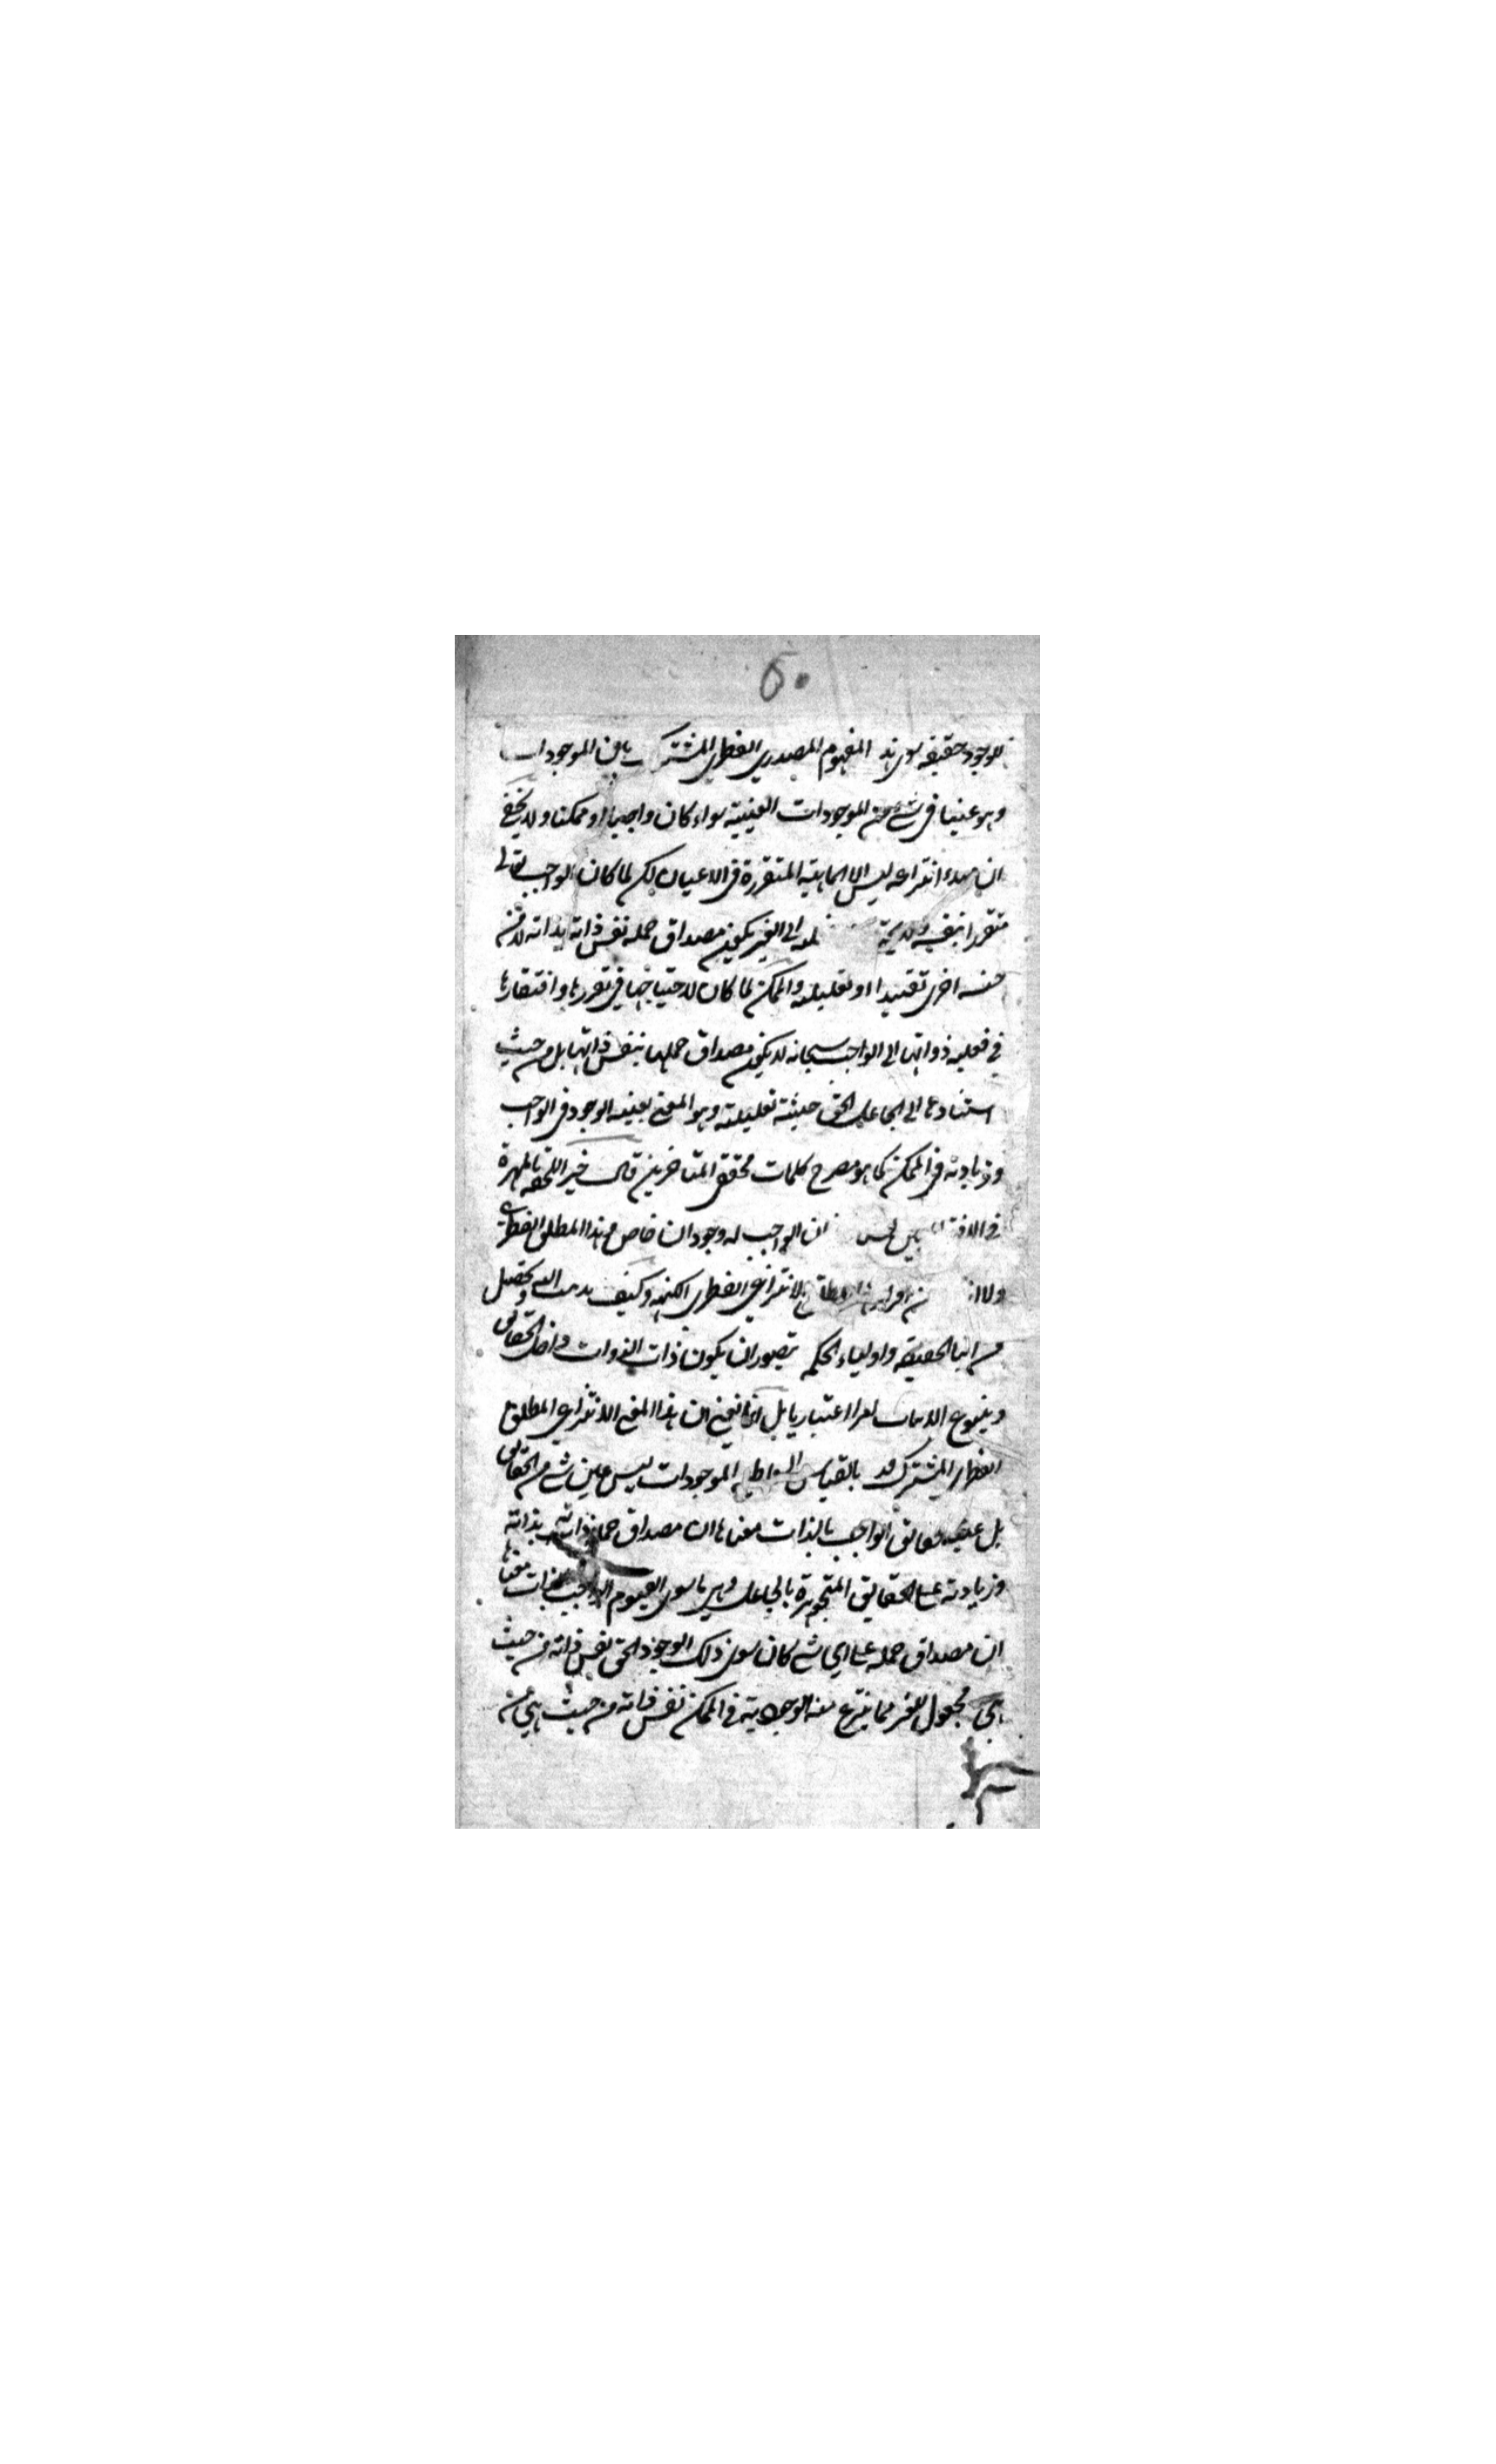 ۵۰
للوجود حقيقة سوى هذا المفهوم المصدري الفطري المشترك بين الموجودات
وهو عينها في شيء من الموجودات العينية سواء كان واجبا او ممكنا ولا يخفى
ان مبدء انتزاعه ليس الا الماهية المتقررة في الاعيان لكن لما كان الواجب تعالى
متقررا بنفسه الى الغير يكون مصداق حمله نفس ذاته بذاته لا من
حيثية اخرى تقييدا او تعليلية والممكن لما كان لاحتياجها في تقررها وافتقارها
في فعلية ذواتها الى الواجب سبحانه لا يكون مصداق حملها بنفس ذاتها بل من حيث
استنادها الى الجاعل الحق حيثية تعليلية وهو المعنى بعينية الوجود في الواجب
وزيادته في الممكن كما هو مصرح كلمات محقق المتاخرين قال خير اللحقة بالمهرة
في ليس ان الواجب له وجود ان خاص وهذا المطلق الفطري
الانتزاعي الفطري الكنه وكيف وتحصيل
من الحقيقة واولياء الحكمة يتصور ان يكون ذات الذوات واصل الحقايق
وينبوع امرا اعتباريا بل انما نعني ان هذا المعنى الانتزاعي المطلق
الفطري المشترك بالقياس الموجودات ليس عين شيء من الحقايق
بل عينية حقايق الواجب بالذات معناها ان مصداق حمله ذاته بذاته
وزيادته على الحقايق المتجوهرة بالجاعل وهي ما سوى القيوم الواجب بالذات معناها
ان مصداق حمله على اي شيء كان سوى ذلك الوجود الحق نفس ذاته من حيث
هي مجعول الغير مما ينتزع منه الموجودية في الممكن نفس ذاته من حيث هي من